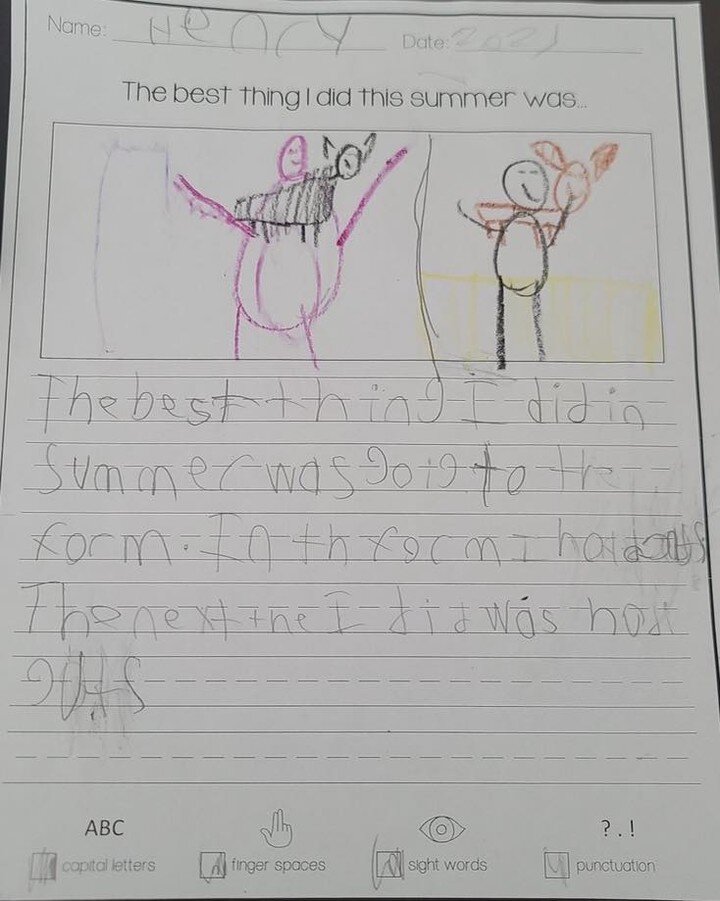 Name: Henry Date: 2021
The best thing I did this summer was...
The best thing I did in
Summer was goig to the
form. In th form I hold
The next the I did was hold
ABC ? . !
capital letters finger spaces sight words punctuation